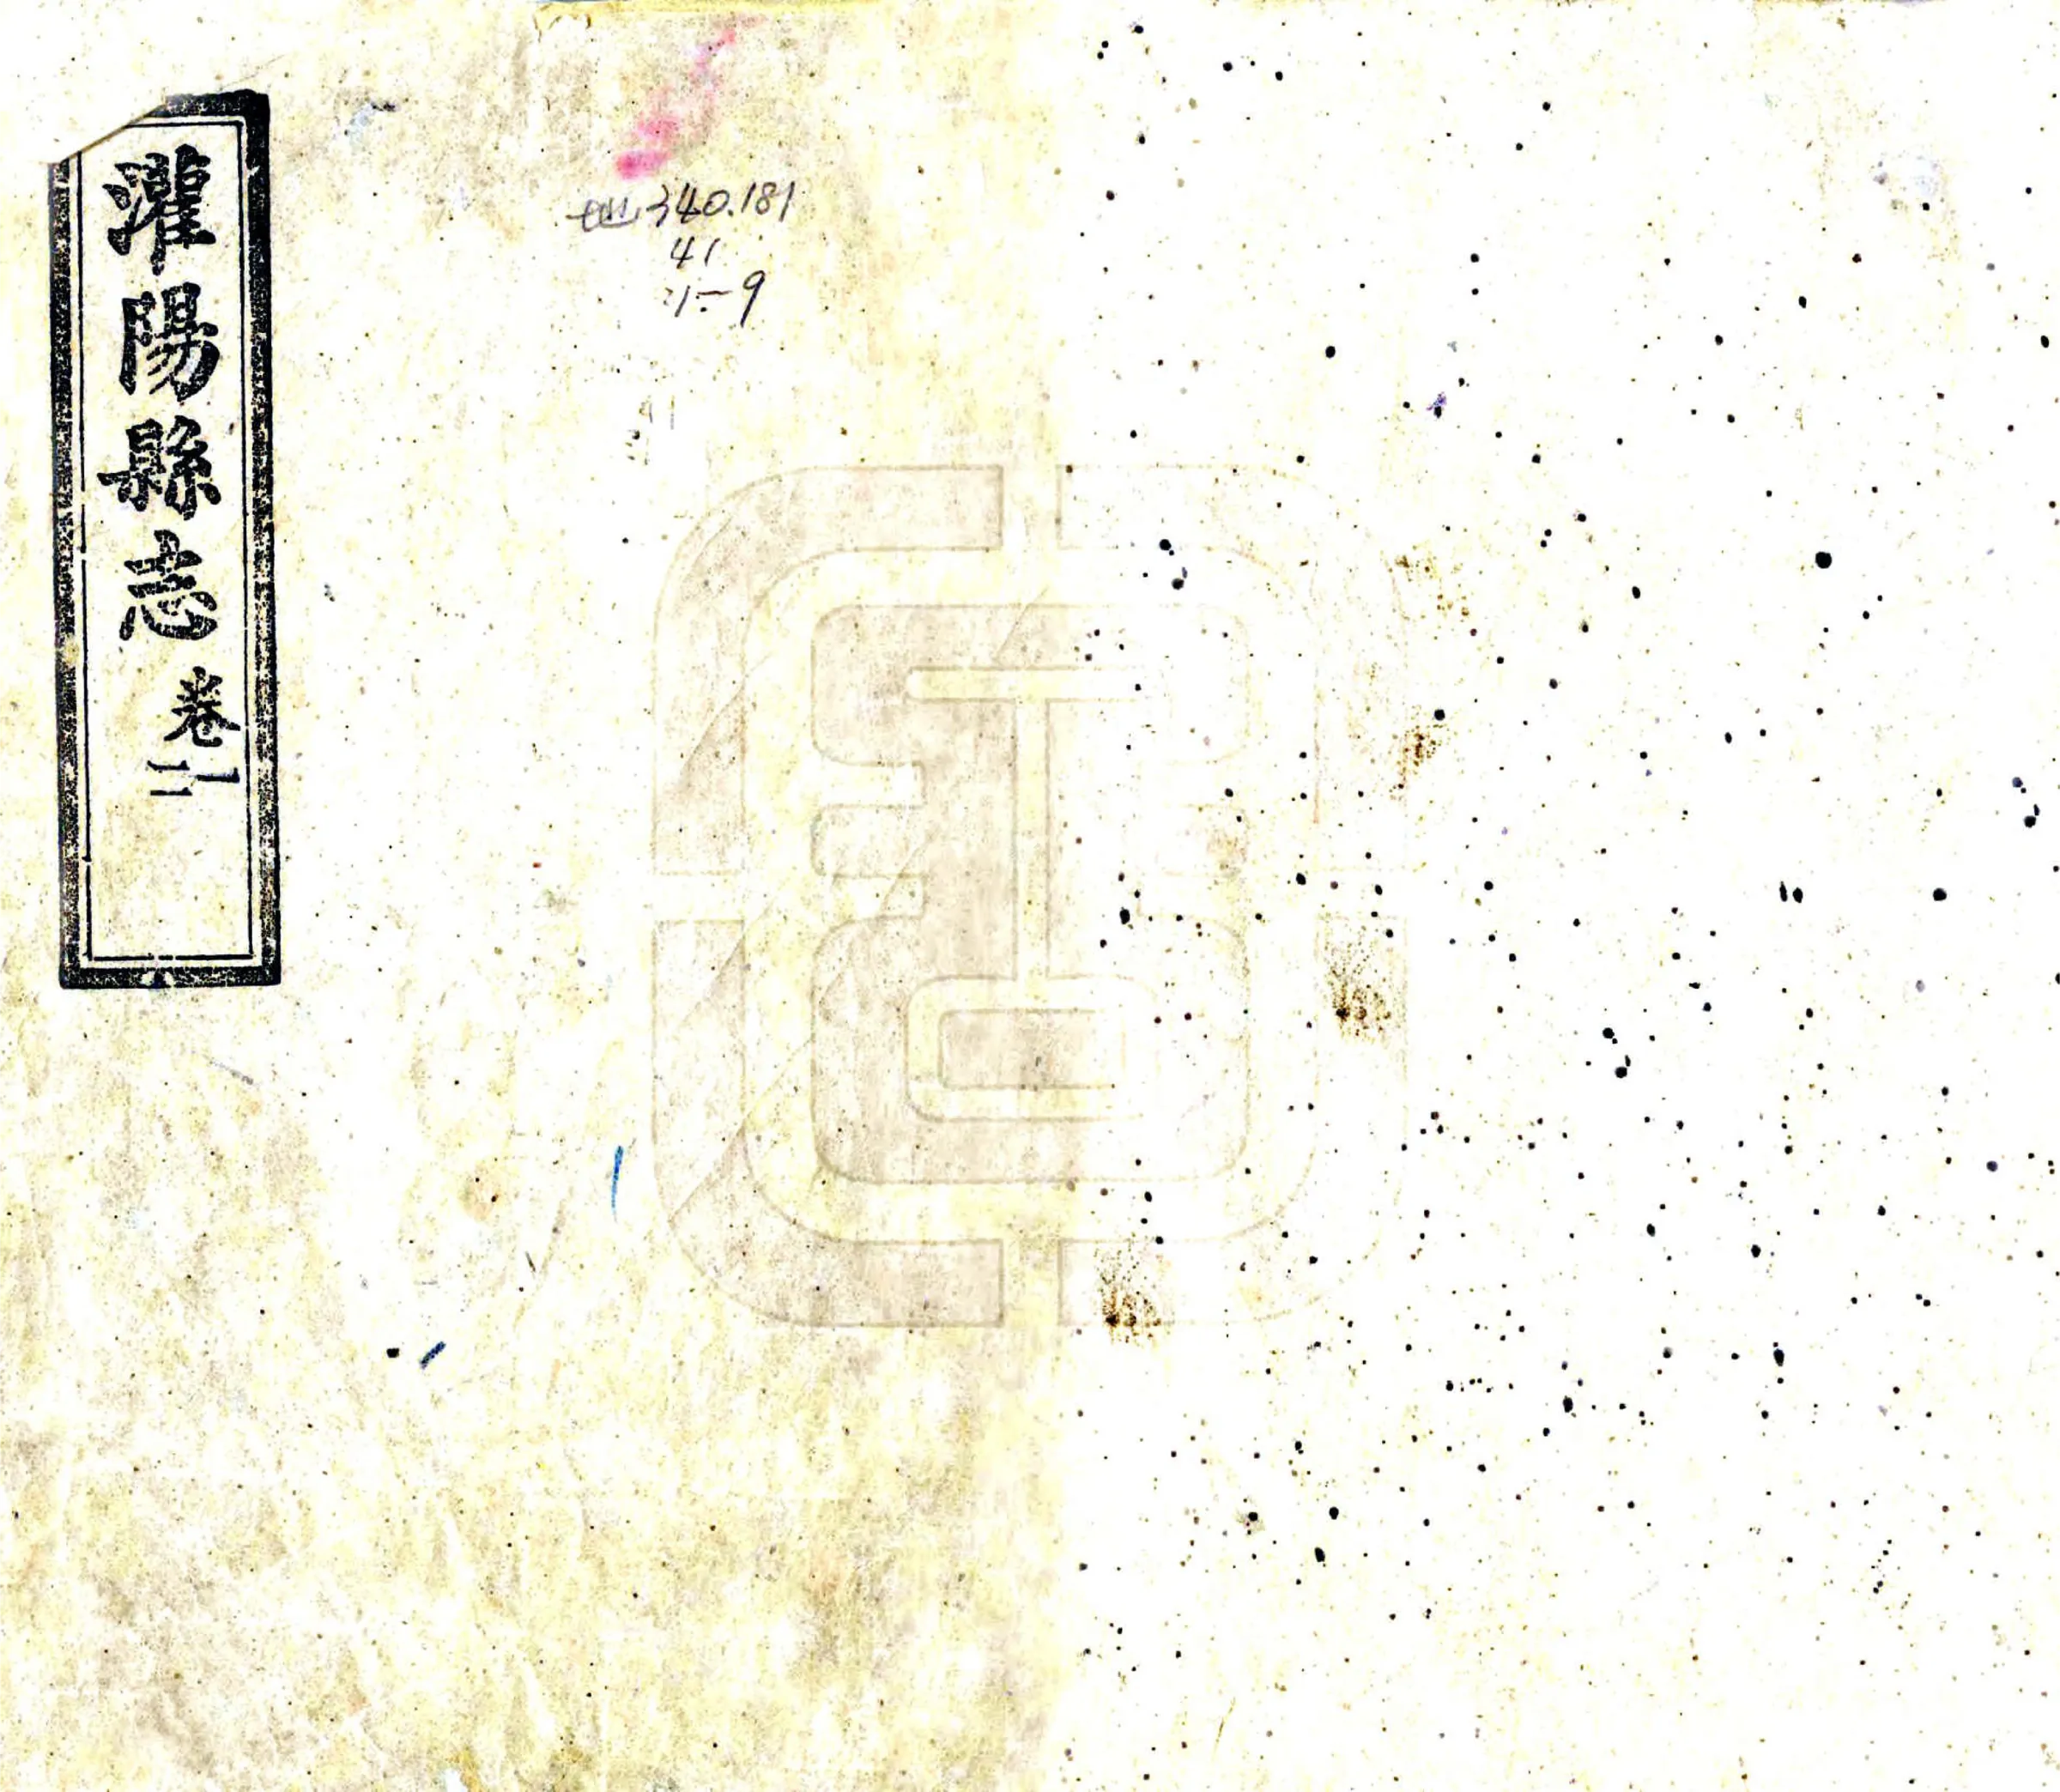 灌陽縣志 卷一二
地340.181
41
:1-9